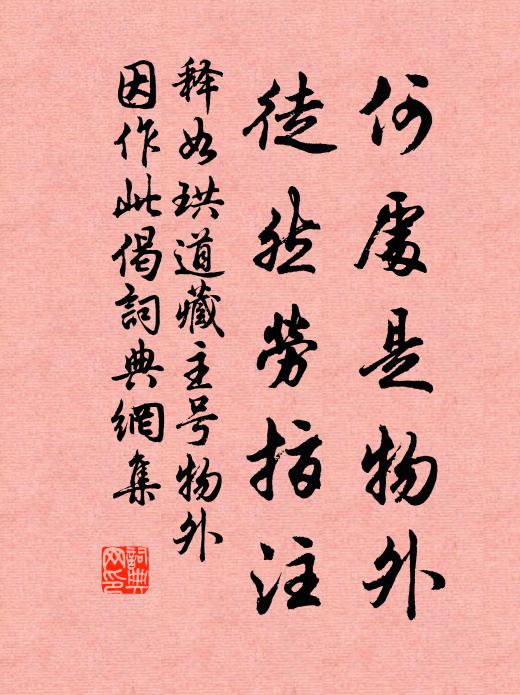 何處是物外
徒然勞指注
释如珙道藏主号物外
因作此偈詞典網集
詞典网印